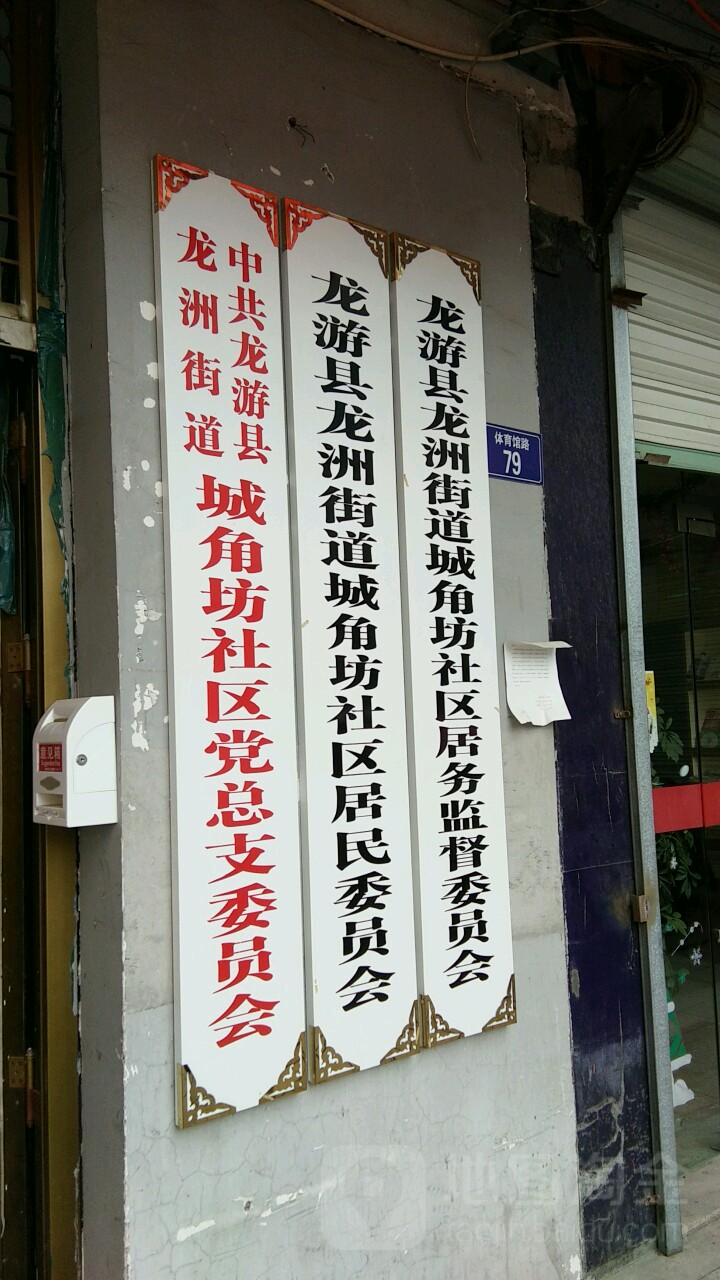 中共龙游县
龙洲街道
城角坊社区党总支委员会
龙游县龙洲街道城角坊社区居民委员会
龙游县龙洲街道城角坊社区居务监督委员会
体育馆路
79
意见箱